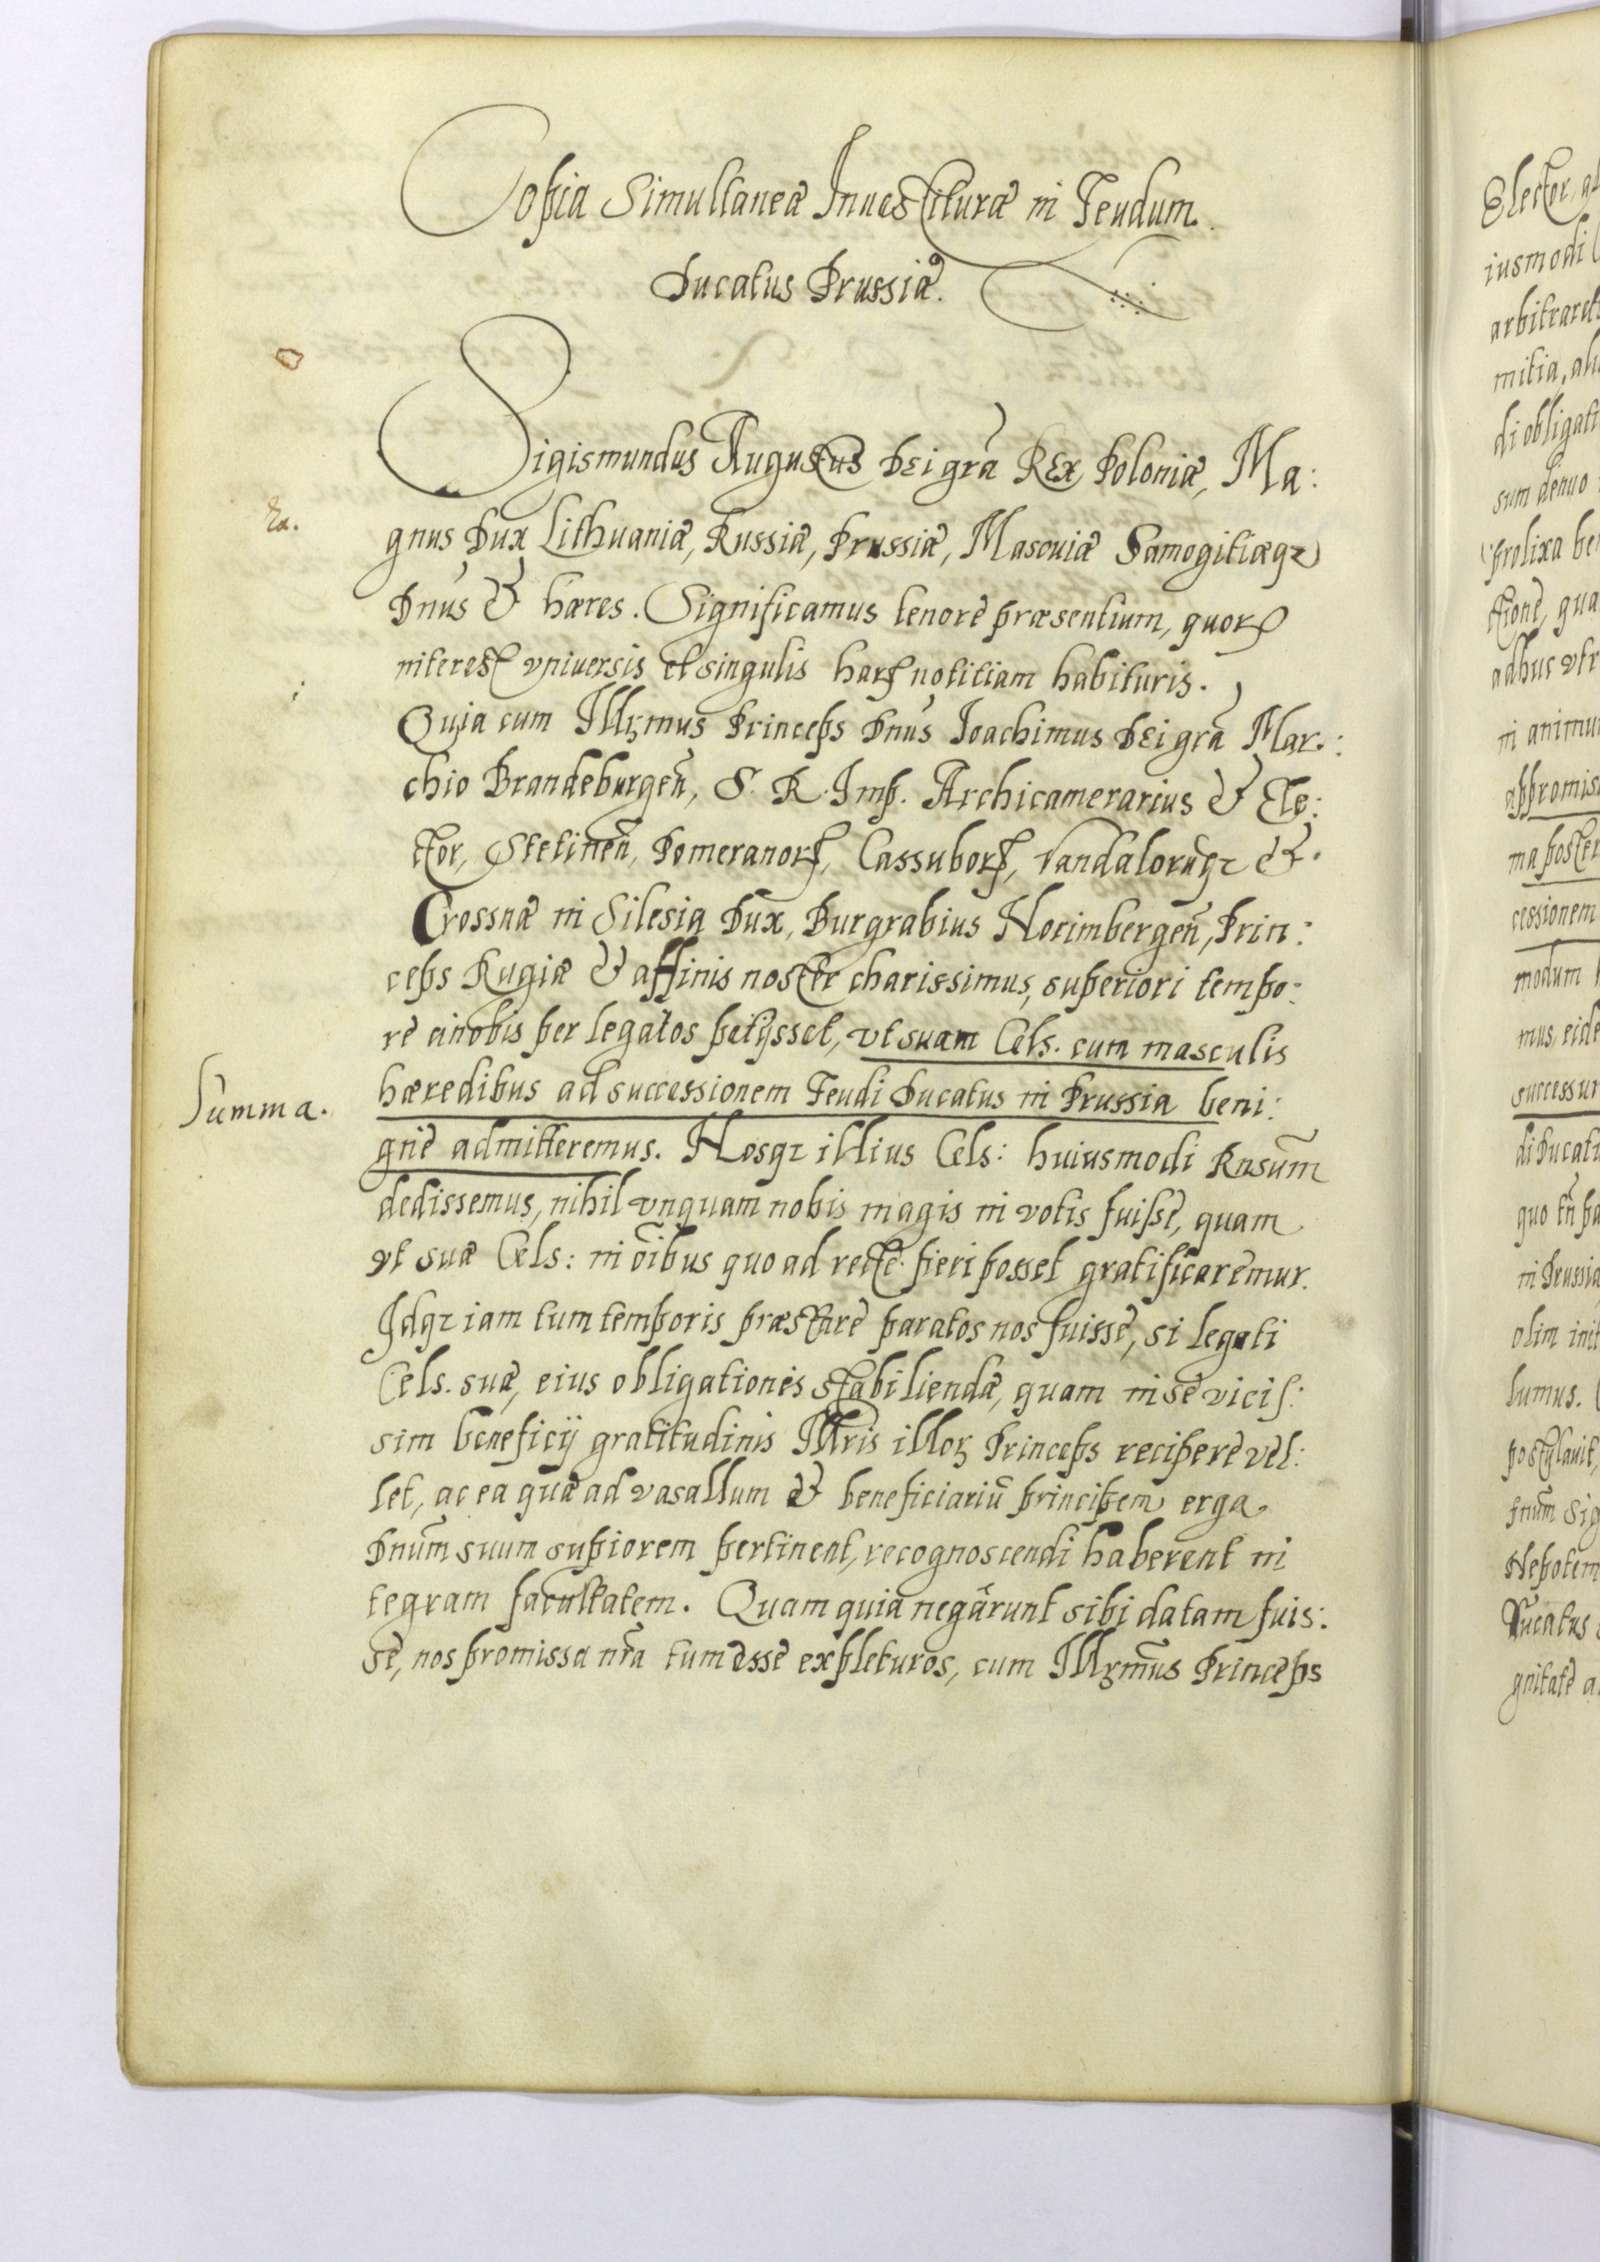 Copia Simultaneæ Inuestituræ in Feudum
Ducatus Prussiæ.
Sigismundus Augustus Dei grã Rex Poloniæ, Ma:
gnus Dux Lithuaniæ, Russiæ, Prussiæ, Masouiæ Samogitiæqꝫ
Dnus & hæres. Significamus tenore præsentium, quorꝫ
interest vniuersis et singulis harꝫ notitiam habituris.
Quia cum Illꝫmus Princeps Dnus Ioachimus Dei grã Mar:
chio Brandeburgeñ, S. R. Imp. Archicamerarius & Ele:
ctor, Stetineñ, Pomeranorꝫ, Cassuborꝫ, Vandalorũqꝫ &.
Crossnæ in Silesia Dux, Burgrabius Norimbergeñ, Prin:
ceps Rugiæ & affinis noster charissimus, superiori tempo:
re a nobis per legatos petijsset, vt suam Cels. cum masculis
Summa.
hæredibus ad successionem Feudi Ducatus in Prussia beni:
gne admitteremus. Nosqꝫ illius Cels: huiusmodi Rñsum
dedissemus, nihil vnquam nobis magis in votis fuisse, quam
vt suæ Cels: in oĩbus quo ad recte fieri posset gratificaremur.
Idqꝫ iam tum temporis præstare paratos nos fuisse, si legati
Cels. suæ, eius obligationis stabiliendæ, quam in se vicis:
sim beneficij gratitudinis Illris illoꝫ Princeps recipere vel:
let, ac ea quæ ad vasallum & beneficiariũ principem erga
Dnũm suum supiorem pertinent, recognoscendi haberent in
tegram facultatem. Quam quia negârunt sibi datam fuis:
se, nos promissa nrã tum esse expleturos, cum Illꝫmus Princeps
Elector,
iusmodi
arbitrare
mitia,
di obligati
sum denuo
prolixa
ctione,
adhuc vtr
in animu
appromis
ma poster
cessionem
modum
mus, eide
successur
di Ducat
quo tñ
in Prussia
olim init
lumus.
postulauit,
Nepotem
Ducatus
gnitate